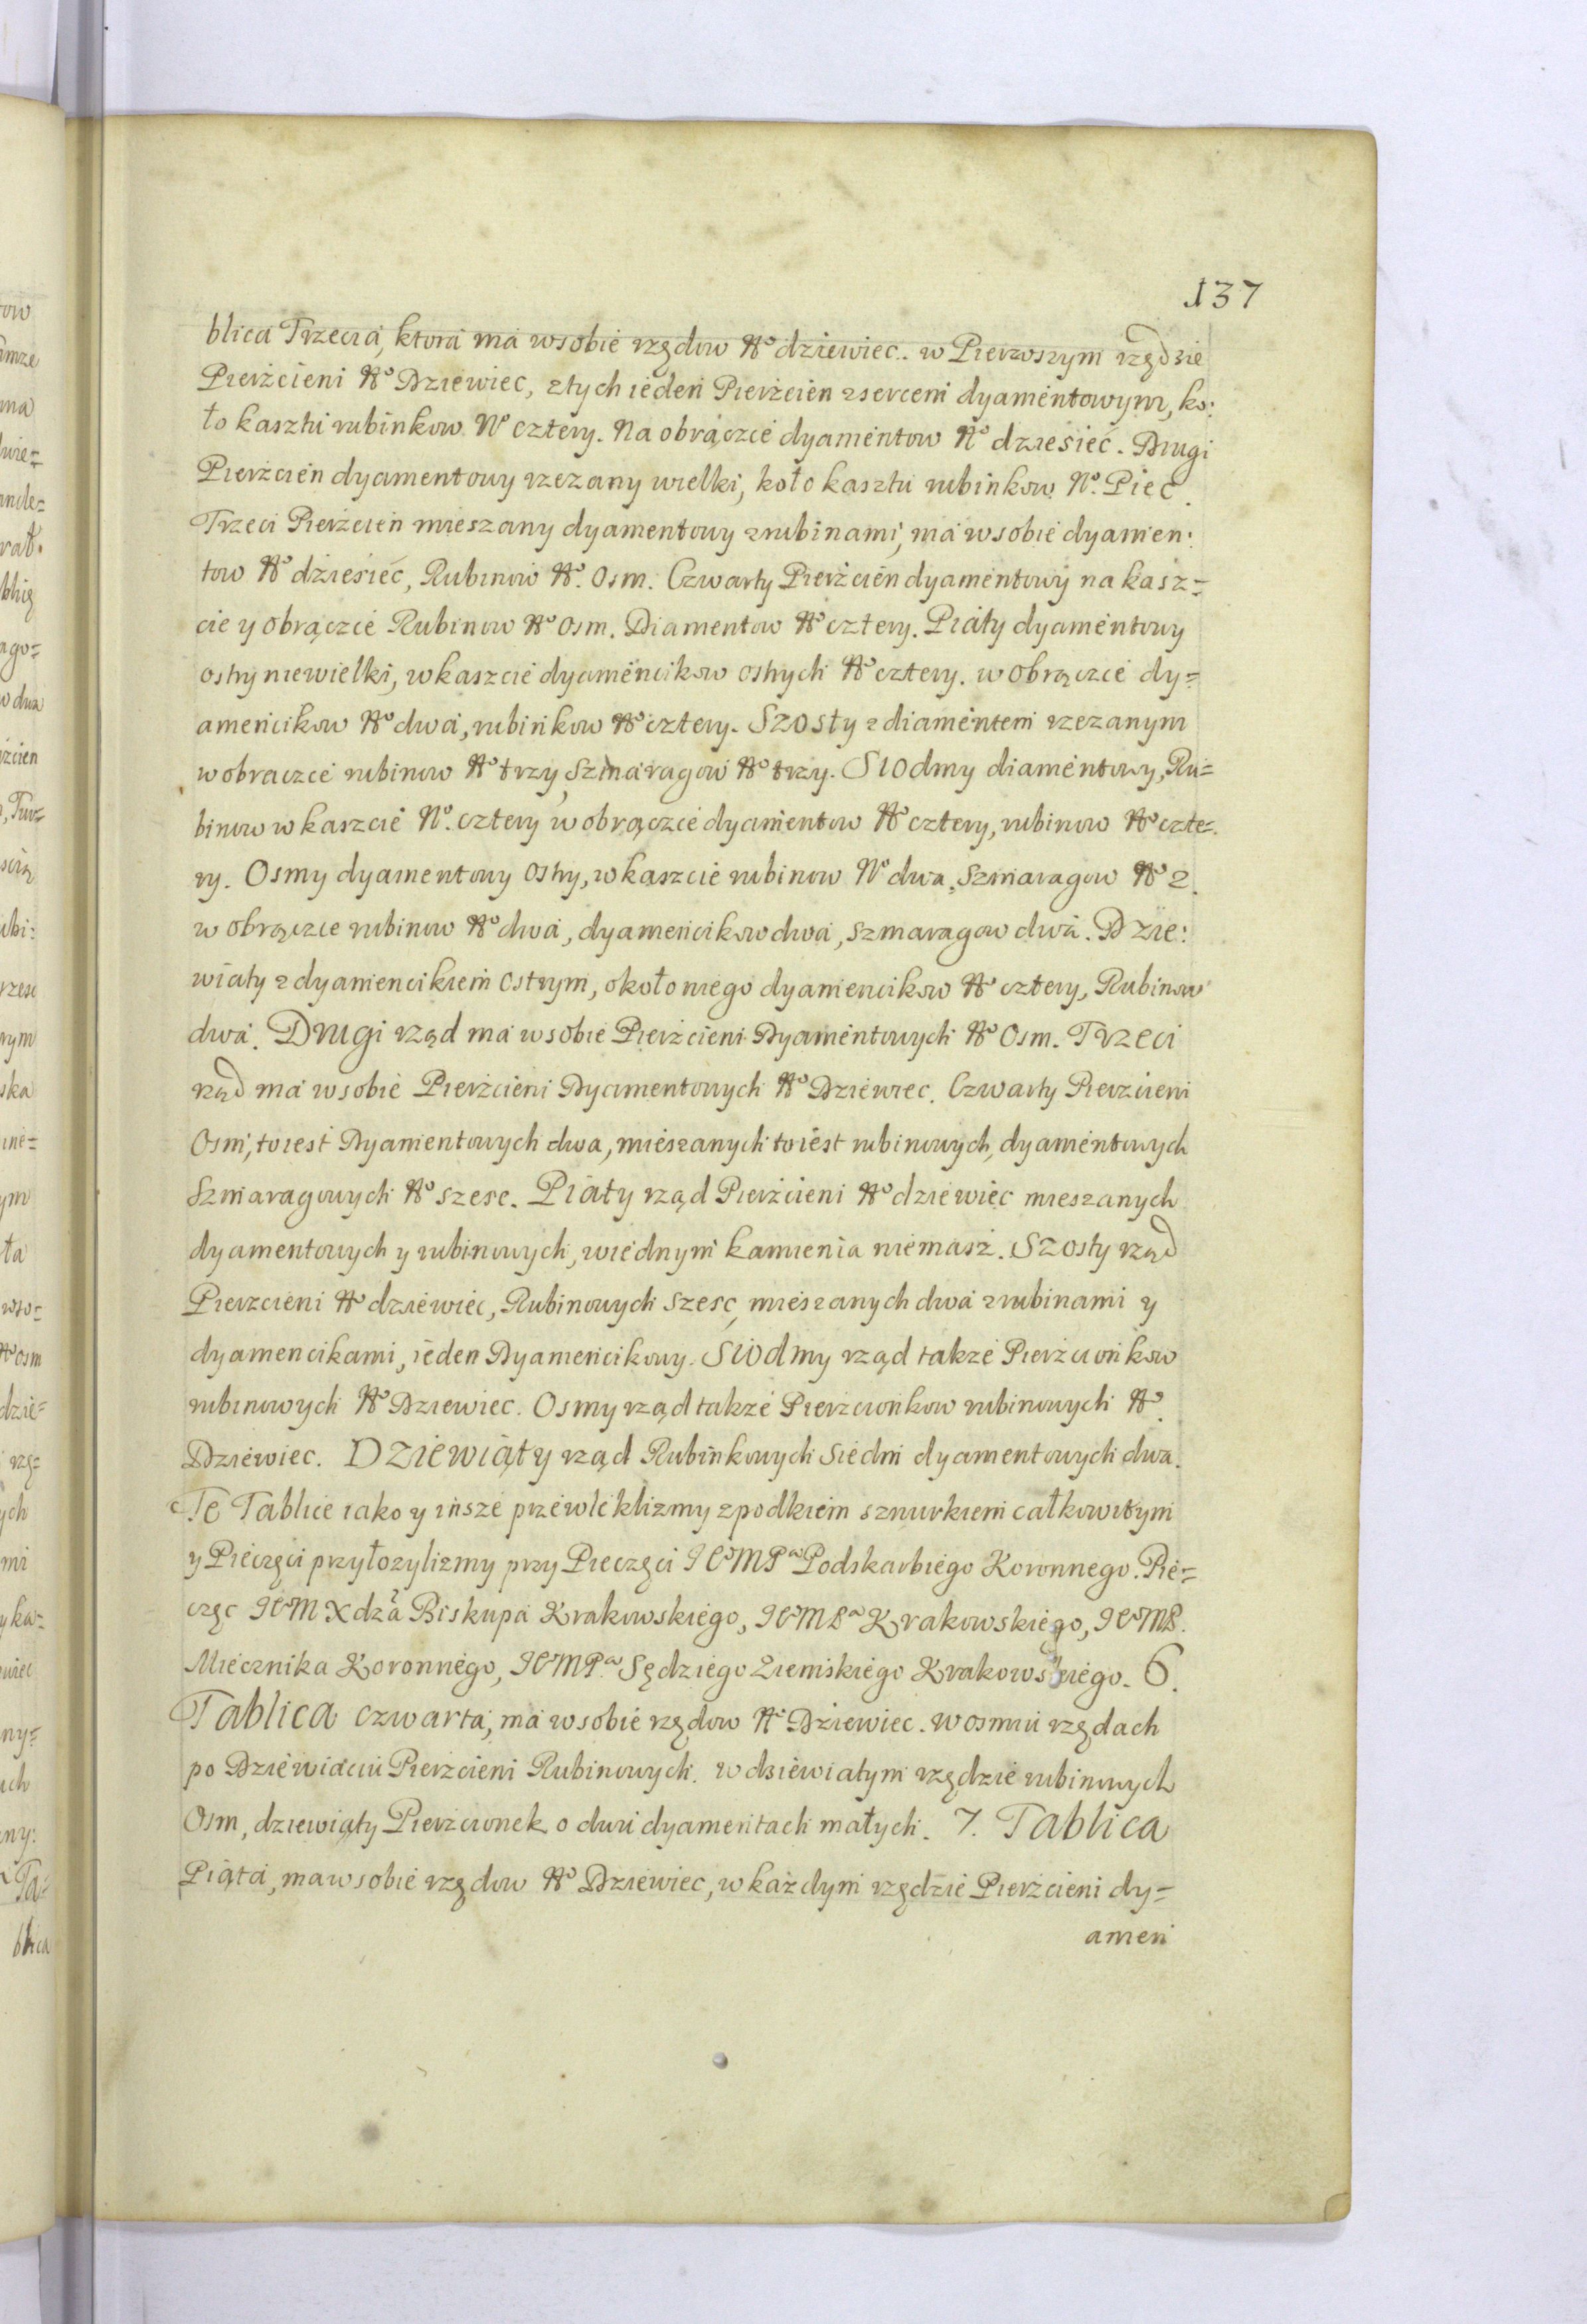 137
blica Trzecia, ktora ma wsobie rzędow No dziewiec. w Pierwszym rzędzie
Pierżcieni No Dziewiec, ztych ieden Pierżcien zsercem dyamentowym, ko:
ło kasztu rubinkow No cztery. Na obrączce dyamentow No dziesieć. Drugi
Pierżcien dyamentowy rzezany wielki, koło kasztu rubinkow No. Piec.
Trzeci Pierżcien mieszany dyamentowy zrubinami, ma wsobie dyamen:
tow No dziesieć, Rubinow No. Osm. Czwarty Pierżcien dyamentowy na kasz=
cie y obrączce Rubinow No osm. Diamentow No cztery. Piąty dyamentowy
ostry niewielki, wkaszcie dyamencikow ostrych No cztery. w obrączce dy=
amencikow No dwa, rubinkow No cztery. Szosty z diamentem rzezanym
wobraczce rubinow No trzy, szmaragow No trzy. Siodmy diamentowy, Ru=
binow w kaszcie No. cztery w obrączce dyamentow No cztery, rubinow No czte=
ry. Osmy dyamentowy ostry, wkaszcie rubinow No dwa, szmaragow No 2.
w obrączce rubinow No dwa, dyamencikow dwa, szmaragow dwa. Dzie:
wiąty zdyamencikiem ostrym, około niego dyamencikow No cztery, Rubinow
dwa. Drugi rząd ma wsobie Pierżcieni Dyamentowych No Osm. Trzeci
rząd ma wsobie Pierżcieni Dyamentowych No Dziewiec. Czwarty Pierzcieni
Osm, toiest Dyamentowych dwa, mieszanych toiest rubinowych, dyamentowych
Szmaragowych No szesc. Piąty rząd Pierżcieni No dziewiec mieszanych
dyamentowych y rubinowych, wiednym kamienia niemasz. Szosty rząd
Pierzcieni No dziewiec, Rubinowych szesc, mieszanych dwa zrubinami y
dyamencikami, ieden Dyamencikowy. Siodmy rząd takze Pierżcionkow
rubinowych No Dziewiec. Osmy rząd takze Pierzcionkow rubinowych No.
Dziewiec. Dziewiąty rząd Rubinkowych Siedm dyamentowych dwa.
Te Tablice iako y insze przewleklizmy zpodkiem sznurkiem całkowitym
y Pieczęci przyłozylizmy przy Pieczęci ICWMPa Podskarbiego Koronnego. Pie=
częc ICWM Xdza Biskupa Krakowskiego, ICWMPa Krakowskiego, ICWMP.
Miecznika Koronnego, ICWMPa Sędziego Ziemskiego Krakowskiego. 6.
Tablica czwarta, ma wsobie rzędow No Dziewiec. wosmiu rzędach
po Dziewiąciu Pierzcieni Rubinowych. w dziewiatym rzędzie rubinowych
Osm, dziewiąty Pierżcionek o dwu dyamentach małych. 7. Tablica
Piąta, ma wsobie rzędow No Dziewiec, w każdym rzędzie Pierżcieni dy=
amen